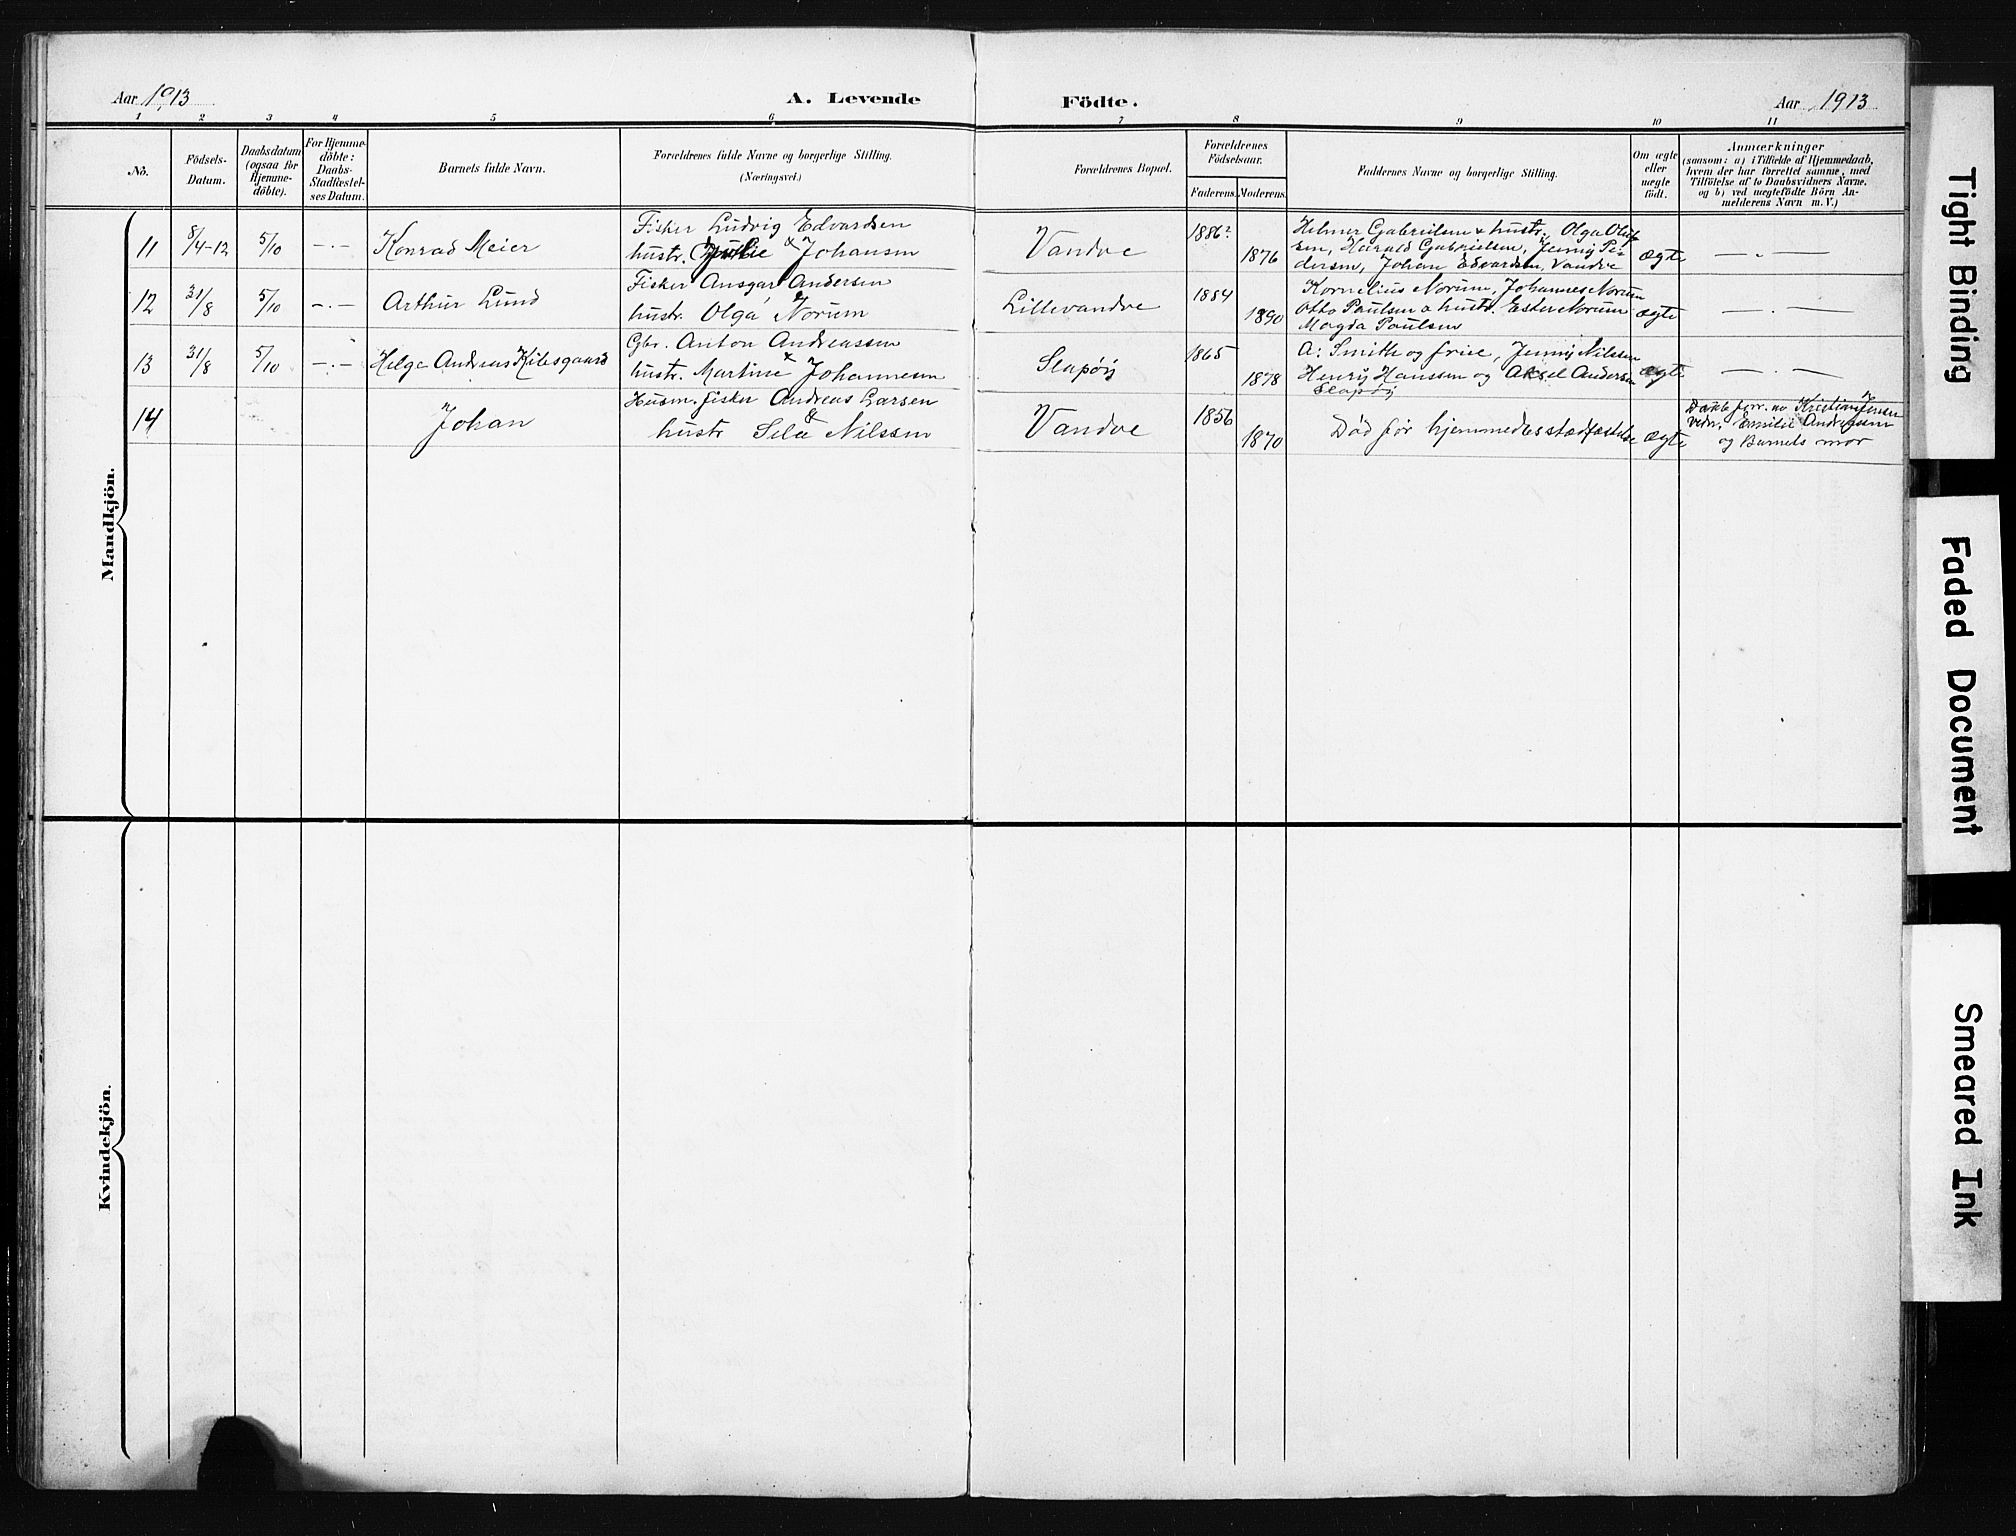 Aar 1913
A. Levende
Födte.
Aar 1913
1 2 3 4 5 6 7 8 9 10 11
No.
Födsels-
Datum.
Daabsdatum
(ogsaa for
Hjemme-
döbte).
For Hjemme-
döbte:
Daabs-
Stadfæstel-
ses Datum.
Barnets fulde Navn.
Forældrenes fulde Navne og borgerlige Stilling.
(Næringsvei.)
Forældrenes Bopæl.
Forældrenes
Födselsaar.
Faderens. Moderens.
Faddernes Navne og borgerlige Stilling.
Om ægte
eller
uægte
födt.
Anmærkninger
(saasom: a) i Tilfælde af Hjemmedaab,
hvem der har forrettet samme, med
Tilföielse af to Daabsvidners Navne,
og b) ved uægtefödte Börn An-
melderens Navn m. V.)
Mandkjön.
11 8/4-12 5/10 -.- Konrad Meier
Fisker Ludvig Edvardsen
hustr. Julie & Johansen
Vandve
1886?
1876
Helmer Gabrielsen & hustr. Olga Oluf
sen, Harald Gabrielsen, Jenny Pe-
dersen, Johan Edvardsen, Vandve
ægte — „ —
12 31/8 5/10 -.- Arthur Lund
Fisker Ansgar Andersen
hustr. Olga Norum
Lillevandve
1884
1890
Kornelius Norum, Johannes Norum
Otto Paulsen o hustr. Ester Norum
Magda Paulsen
ægte — . —
13 31/8 5/10 -.- Helge Andreas Kilesgaard
Gbr. Anton Andreassen
hustr. Martine & Johannesen
Slapöy
1865
1878
A. Smith og frue, Jenny Nilssen
Henry Hanssen og Aksel Andersen
Slapöy
ægte — . —
14 Johan
Husm. fisker Andreas Larsen
&
hustr Sela Nilssen
Vandve
1856
1870
Död för hjemmed.s stadfæstelse
ægte
Daab forr. av Kristian Jensen
Vidn. Emilie Andreassen
og Barnets mor
Kvindekjön.
Tight Binding
Faded Document
Smeared Ink